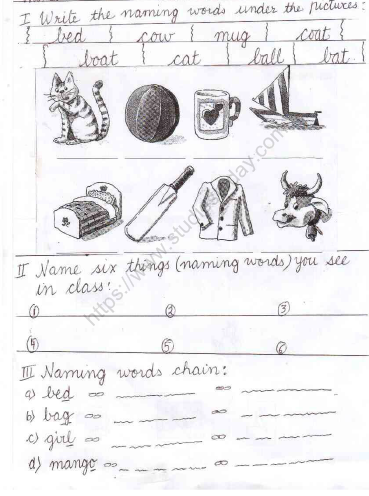 I Write the naming words under the pictures:
{ bed } cow { mug } coat {
{ boat { cat { ball { bat }
https://www.studiestoday.com
II Name six things (naming words) you see
in class:
① ② ③
④ ⑤ ⑥
III Naming words chain:
a) bed ∞ _ _ _ _ ∞ _ _ _ _
b) bag ∞ _ _ _ _ ∞ _ _ _ _ _
c) girl ∞ _ _ _ _ ∞ _ _ _ _ _
d) mango ∞ _ _ _ _ _ ∞ _ _ _ _ _